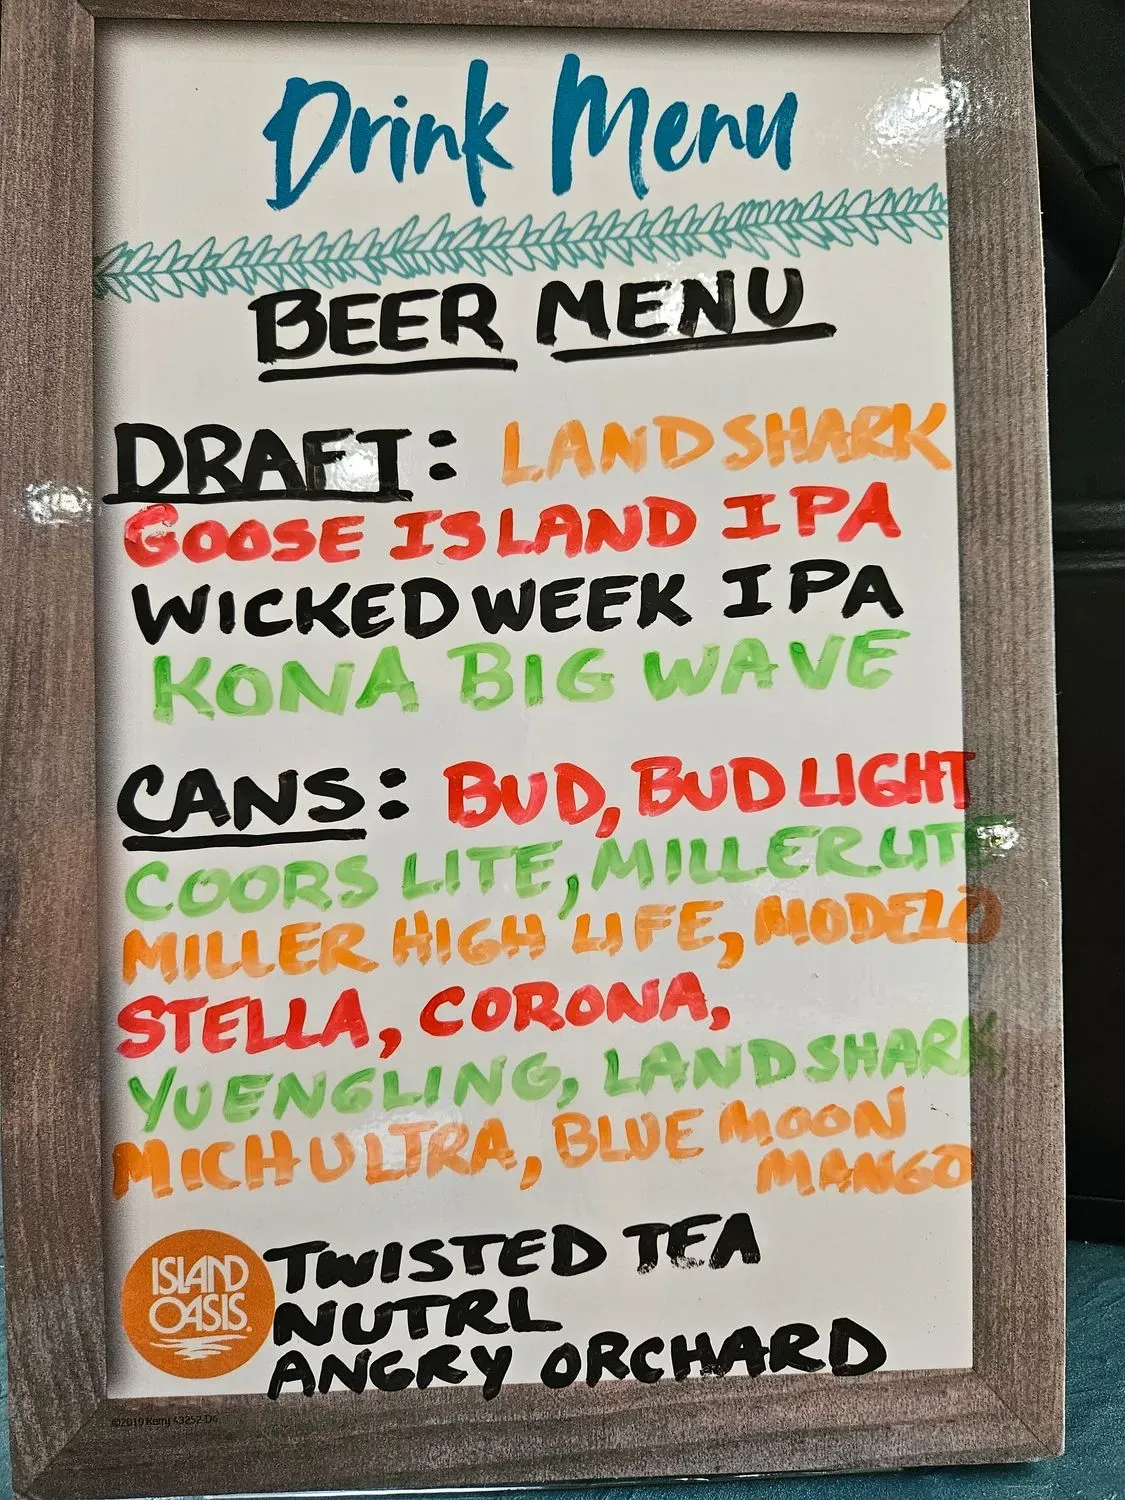 Drink Menu
BEER MENU
DRAFT: LANDSHARK
GOOSE ISLAND IPA
WICKED WEEK IPA
KONA BIG WAVE
CANS: BUD, BUD LIGHT
COORS LITE, MILLER LITE
MILLER HIGH LIFE, MODELO
STELLA, CORONA,
YUENGLING, LANDSHARK
MICH ULTRA, BLUE MOON
MANGO
TWISTED TEA
ISLAND
OASIS.
NUTRL
ANGRY ORCHARD
©2019 Kerry 43252-D6